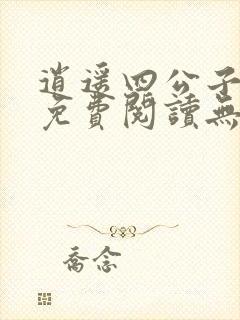 逍遥四公子
免費閱讀無
喬念